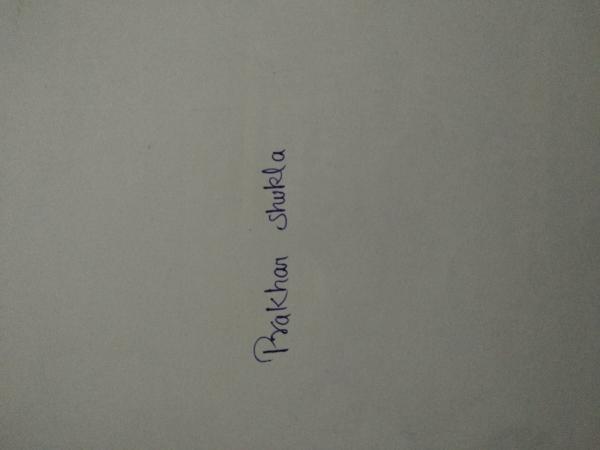 Prakhar shukla